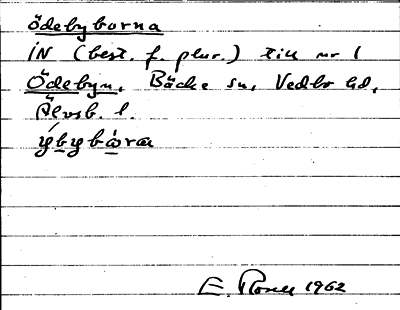 Ödebyborna
IN (best. f. plur.) till nr 1
Ödebyn, Bäcke sn, Vedbo hd,
Älvsb. l.
E. 1962